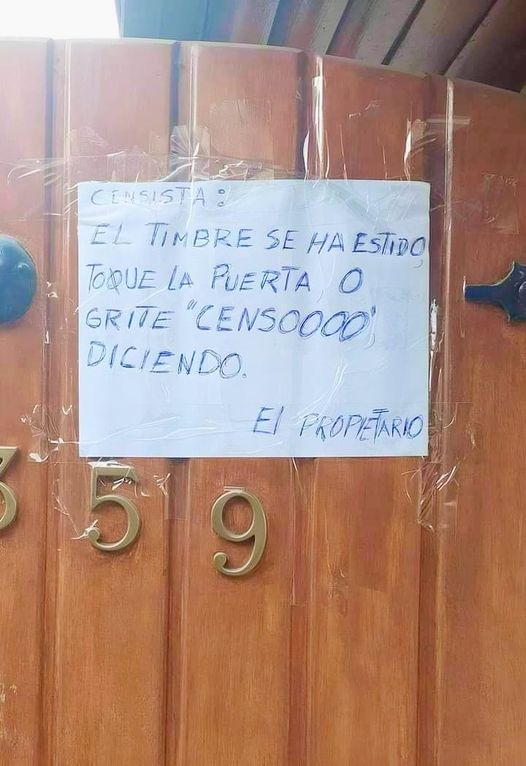 CENSISTA:
EL TIMBRE SE HA ESTIDO,
TOQUE LA PUERTA, O
GRITE "CENSOOOO",
DICIENDO.
El PROPIETARIO
359